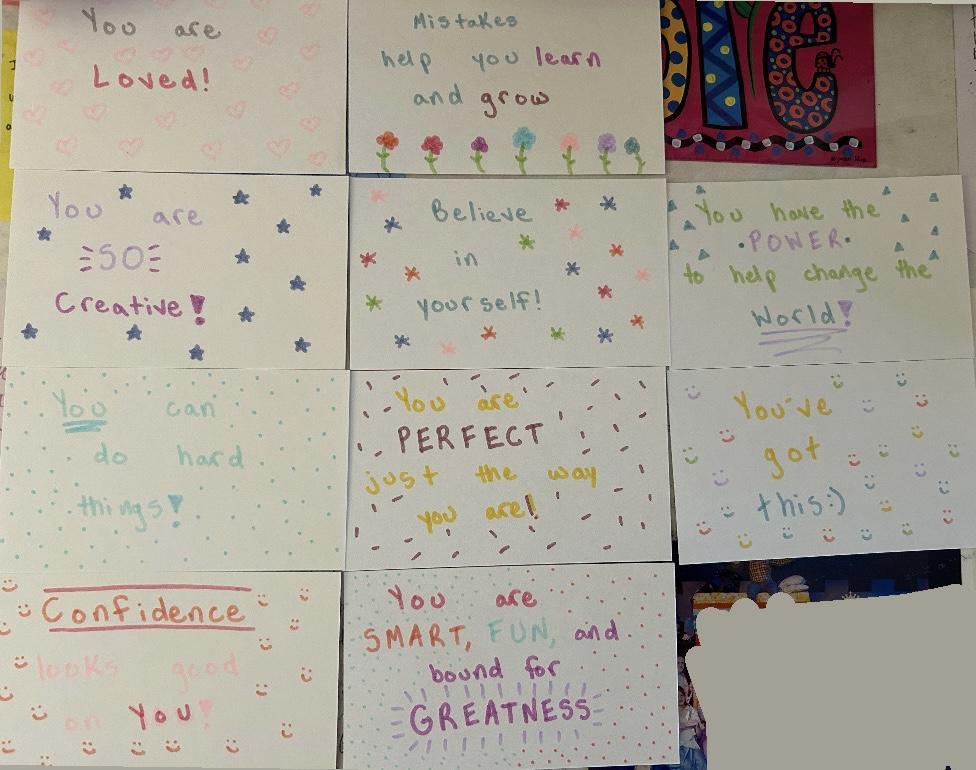 You are
Loved!
Mistakes
help you learn
and grow
You are
SO
Creative!
Believe
in
yourself!
You have the
•POWER•
to help change the
World!
You can
do hard
things!
You are
PERFECT
just the way
you are!
You've
got
this:)
Confidence
looks good
on You!
You are
SMART, FUN, and
bound for
GREATNESS